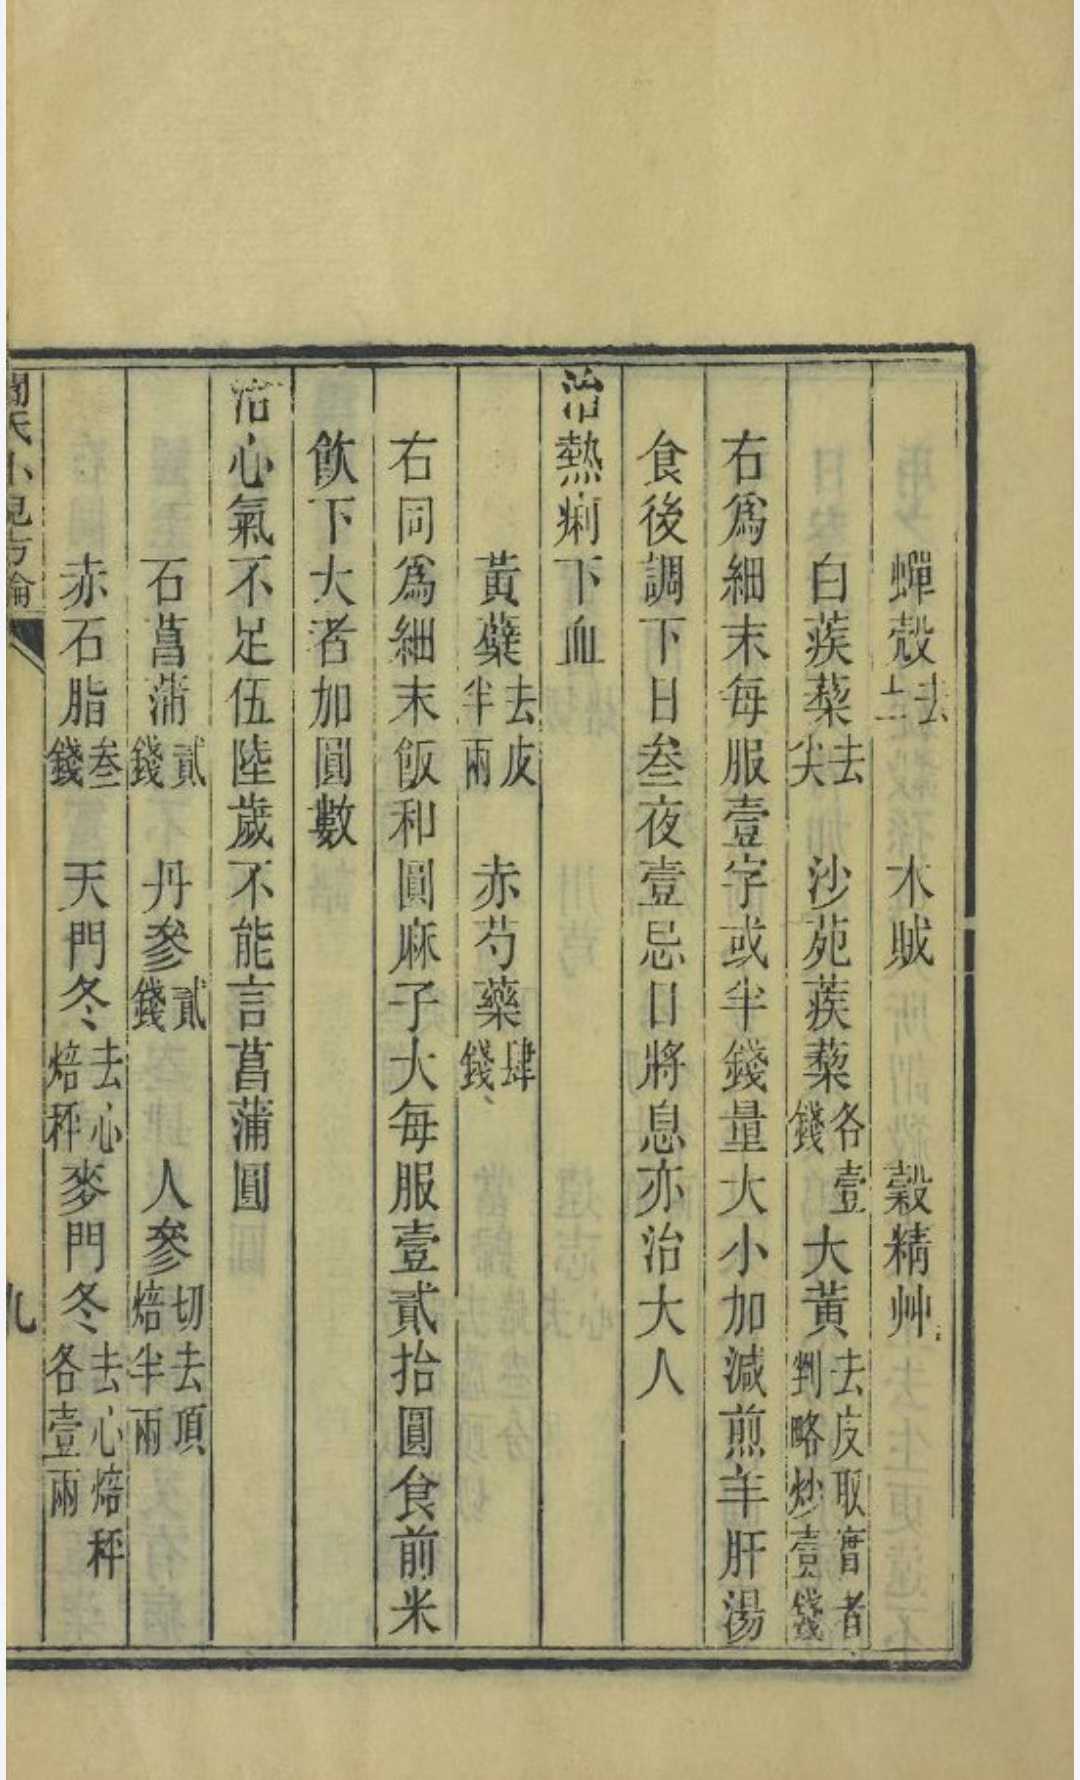 蟬殼去土 木賊 穀精艸
白蒺蔾去尖 沙苑蒺蔾各壹錢 大黃去皮取實者剉略炒壹錢
右爲細末每服壹字或半錢量大小加減煎羊肝湯
食後調下日叁夜壹忌日將息亦治大人
治熱痢下血
黃蘗去皮半兩 赤芍藥肆錢
右同爲細末飯和圓麻子大每服壹貳拾圓食前米
飲下大者加圓數
治心氣不足伍陸歲不能言菖蒲圓
石菖蒲貳錢 丹參貳錢 人參切去頂焙半兩
赤石脂叁錢 天門冬去心焙秤 麥門冬去心焙秤各壹兩
閻氏小兒方論 九